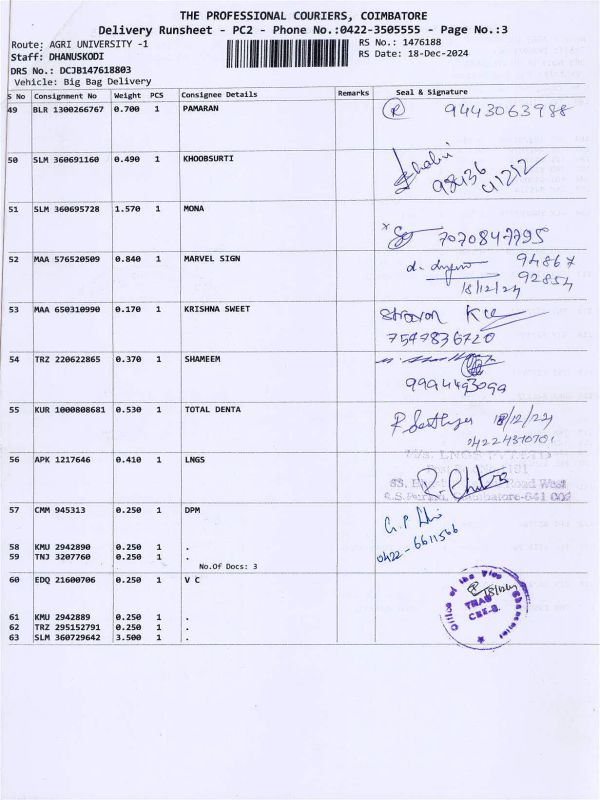 THE PROFESSIONAL COURIERS, COIMBATORE
Delivery Runsheet - PC2 - Phone No.:0422-3505555 - Page No.:3
Route: AGRI UNIVERSITY -1
RS No.: 1476188
Staff: DHANUSKODI
RS Date: 18-Dec-2024
DRS No.: DCJB147618803
Vehicle: Big Bag Delivery
S No Consignment No Weight PCS Consignee Details Remarks Seal & Signature
49 BLR 1300266767 0.700 1 PAMARAN
R 9443063988
50 SLM 360691160 0.490 1 KHOOBSURTI
98436 41212
51 SLM 360695728 1.570 1 MONA
7070847795
52 MAA 576520509 0.840 1 MARVEL SIGN
94867
92854
18/12/24
53 MAA 650310990 0.170 1 KRISHNA SWEET
7547836720
54 TRZ 220622865 0.370 1 SHAMEEM
9994493099
55 KUR 1000808681 0.530 1 TOTAL DENTA
18/12/24
04224310701
56 APK 1217646 0.410 1 LNGS
57 CMM 945313 0.250 1 DPM
0422-6611566
58 KMU 2942890 0.250 1 .
59 TNJ 3207760 0.250 1 .
No.Of Docs: 3
60 EDQ 21600706 0.250 1 V C
Office of the Vice Chancellor
61 KMU 2942889 0.250 1 .
62 TRZ 295152791 0.250 1 .
63 SLM 360729642 3.500 1 .